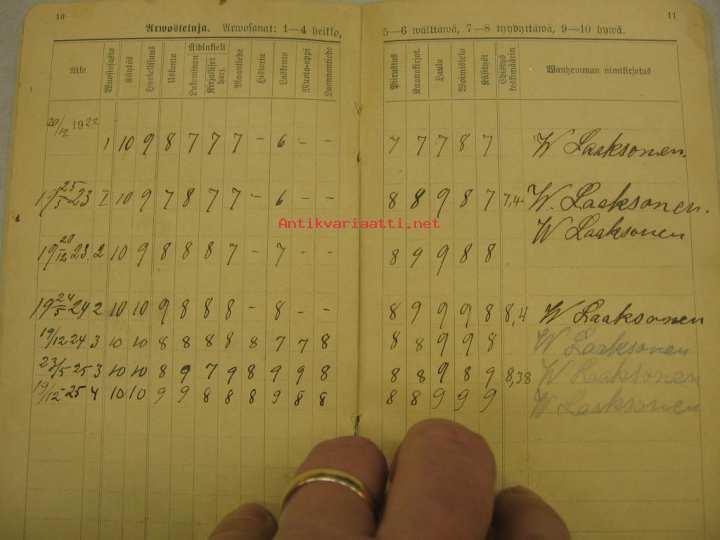 10
11
Arvosteluja. Arvosanat: 1—4 heikko,
5—6 wälttäwä, 7—8 tyydyttäwä, 9—10 hywä.
Aika
Wuosiosasto
Käytös
Huolellisuus
Uskonto
Äidinkieli
Lukeminen
Kirjalliset harj.
Maantiede
Historia
Laskento
Muoto-oppi
Luonnontiede
Piirustus
Kaunokirjoit.
Laulu
Woimistelu
Käsityöt
Wanhemman nimikirjoitus
20/12 1922 1 10 9 8 7 7 7 – 6 – – 7 7 7 8 7 W Laaksonen.
19 25/5 23 1 10 9 7 8 7 7 – 6 – – 8 8 9 8 7 7,4 W. Laaksonen.
W Laaksonen
19 20/12 23. 2 10 9 8 8 8 7 – 7 – – 8 9 9 8 8
19 24/5 24 2 10 10 9 8 8 8 – 8 – – 8 9 9 9 8 8,4 W Laaksonen
19/12 24 3 10 10 8 8 8 8 8 7 7 8 8 8 9 9 8 W Laaksonen
23/5 25 3 10 10 8 9 7 9 8 9 9 8 8 8 9 8 9 8,38 W Laaksonen
19/12 25 4 10 10 9 9 8 8 8 9 8 8 8 8 9 9 9 W Laaksonen
Antikvariaatti.net